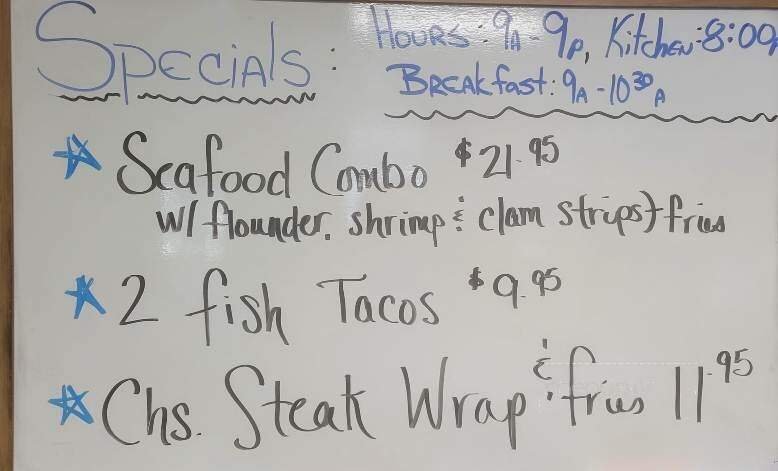 Specials:
Hours: 9A-9P, Kitchen: 8:00
Breakfast: 9A-10³⁰A
Seafood Combo $21.95
w/ flounder, shrimp & clam strips + fries
2 fish Tacos $9.95
Chs. Steak Wrap & fries 11.95